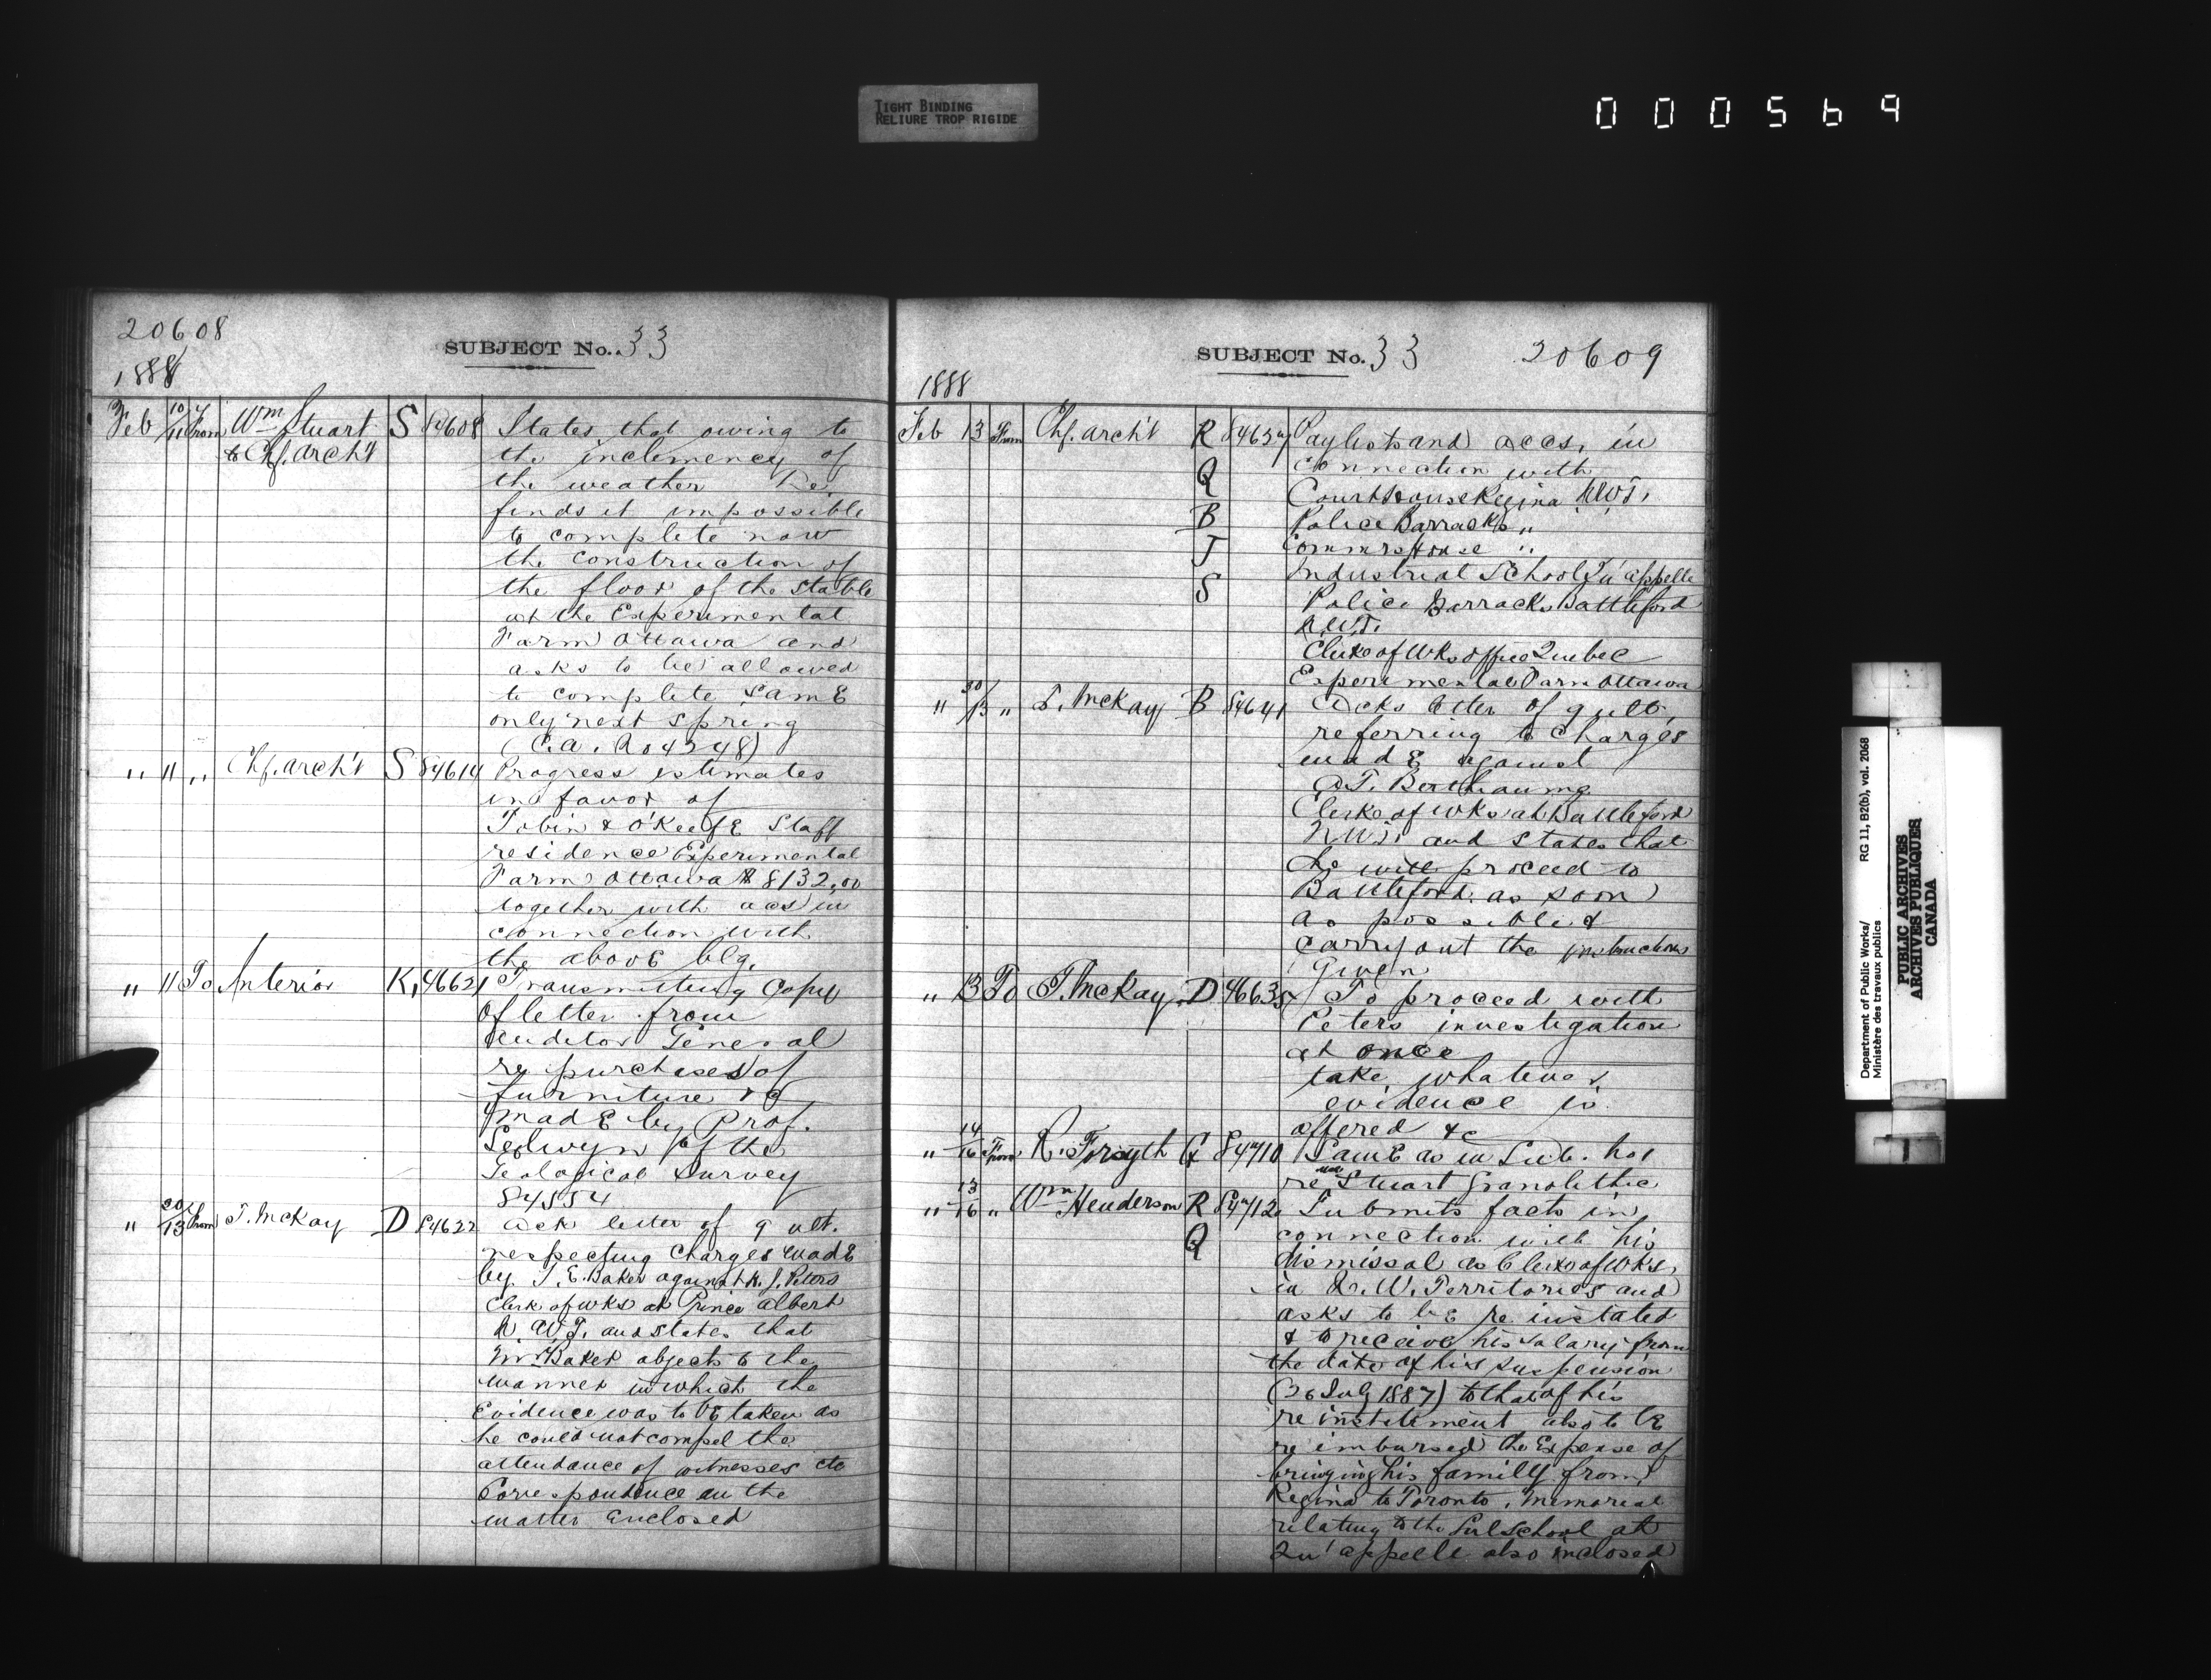 TIGHT BINDING
RELIURE TROP RIGIDE
000569
20608
SUBJECT No. 33
1888
Feb 10/11 From Wm Stuart S 84608 States that owing to
to Chf. Arch't the inclemency of
the weather he
finds it impossible
to complete now
the construction of
the floor of the stable
at the Experimental
Farm Ottawa and
asks to be allowed
to complete same
only next spring
(C.a. No 4298)
" 11 " Chf. arch't S 84614 Progress estimates
in favor of
Tobin & O'Keefe Staff
residence Experimental
Farm Ottawa $8132,00
together with accs in
connection with
the above blg.
" 11 To Interior K, 46621 Transmitting Copy
of letter from
Auditor General
re purchases of
furniture &c
made by Prof.
Selwyn of the
Geological Survey
84554
" 30/13 From T. McKay D 84622 Ack letter of 9 ult.
respecting charges made
by J. E. Baker against R. J. Peters
Clerk of wks at Prince Albert
N.W.T. and states that
Mr. Baker objects to the
manner in which the
Evidence was to be taken as
he could not compel the
attendance of witnesses etc
Correspondence on the
matter enclosed
SUBJECT No. 33 20609
1888
Feb 13 From Chf. arch't R 84637 Paylists and accs, in
Q connection with
Court House Regina N.W.T.
B Police Barracks "
J Commrs House "
Industrial School Qu'appelle
S Police Barracks Battleford
N.W.T.
Clerk of Wks office Quebec
Experimental Farm Ottawa
" 30/13 " T. McKay B 84641 Acks letter of 9 ulto,
referring to charges
made against
A.T. Berthiaume
Clerk of wks at Battleford
N.W.T. and states that
he will proceed to
Battleford as soon
as possible &
carry out the instructions
given
" 13 To T. McKay D 46635 To proceed with
Peters investigation
at once
take whatever
evidence is
offered &c
" 14/16 From R. Forsyth G 84710 Same as in Sub. No 1
re Stuart Granolithic
" 13/16 " Wm Henderson R 84712 Submits facts in
Q connection with his
dismissal as Clerk of Wks,
in N. W. Territories and
asks to be re instated
& to receive his salary from
the date of his suspension
(26 July 1887) to that of his
re instatement also to be
re imbursed the Expense of
bringing his family from
Regina to Toronto. Memorial
relating to the School at
Qu'appelle also inclosed
Department of Public Works/ RG 11, B2(b), vol. 2068
Ministère des travaux publics
PUBLIC ARCHIVES
ARCHIVES PUBLIQUES
CANADA